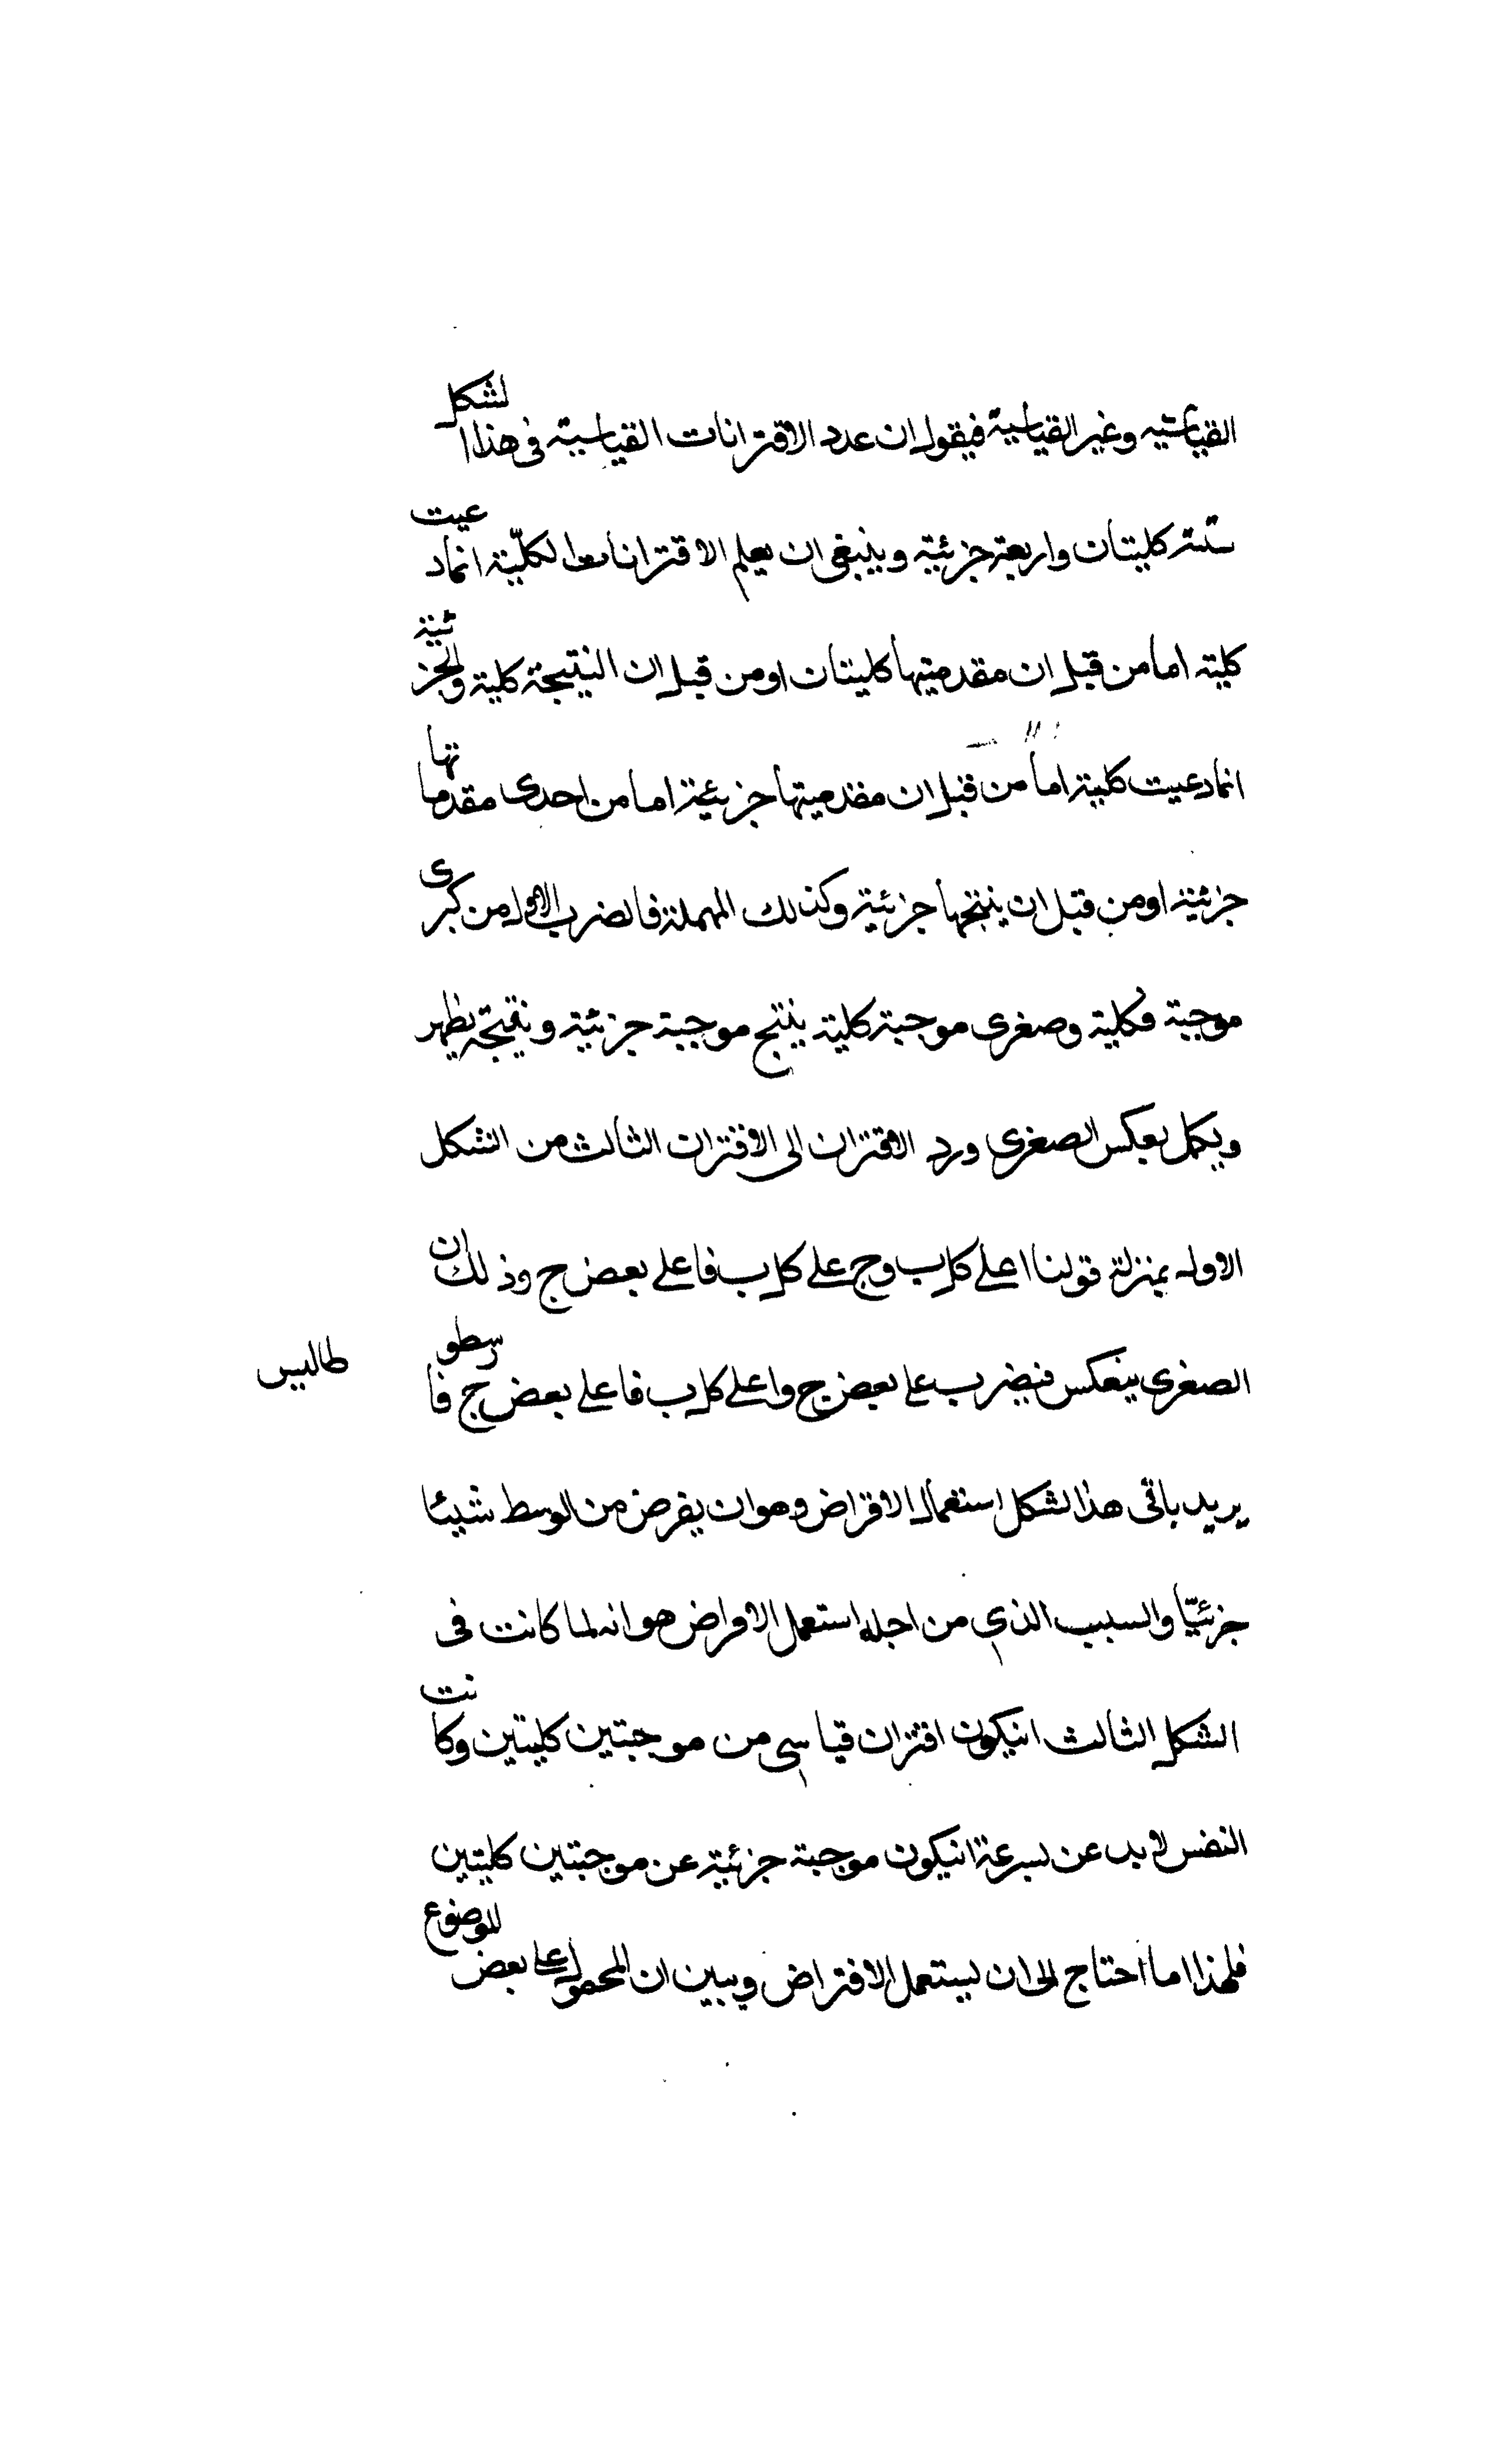 القياسيه وغير القياسية فيقول ان عدد الاقترانات القياسية فى هذا الشكل
ستة كليتان واربعة جزئية وينبغى ان يعلم الاقترانات الكلية انما دعيت
كلية اما من قبل ان مقدمتيها كليتان او من قبل ان النتيجة كلية والجزئية
انما دعيت كلية اما من قبل ان مقدميتها جزئية اما من احدى مقدماتها
جزئية او من قبل ان ينتجها جزئية وكذلك المهملة فالضرب الاول من كبرى
موجبة وكلية وصغرى موجبة كلية ينتج موجبة جزئية ونتيجته يظهر
ويكمل بعكس الصغرى ورد الاقتران الى الاقتران الثالث من الشكل
الاول بمنزلة قولنا ا على كل ب وج على كل ب فا على بعض ج وذلك ان
الصغرى ينعكس فيضرب على بعض ج وا على كل ب فا على بعض ج فارسطو طاليس
يريد باقى هذا لشكل استعمال الاقراض وهو ان يفرض من الوسط شيئا
جزئيّا والسبب الذى من اجله استعمل الافراض هو انه لما كانت فى
الشكل الثالث انيكون اقتران قياسى من موجبتين كليتين وكانت
النفس لا بد عن بسرعة انيكون موجبة جزئية عن موجبتين كليتين
فلهذا ما احتاج الى ان يستعمل الافتراض ويبين ان المحمول على بعض للموضوع